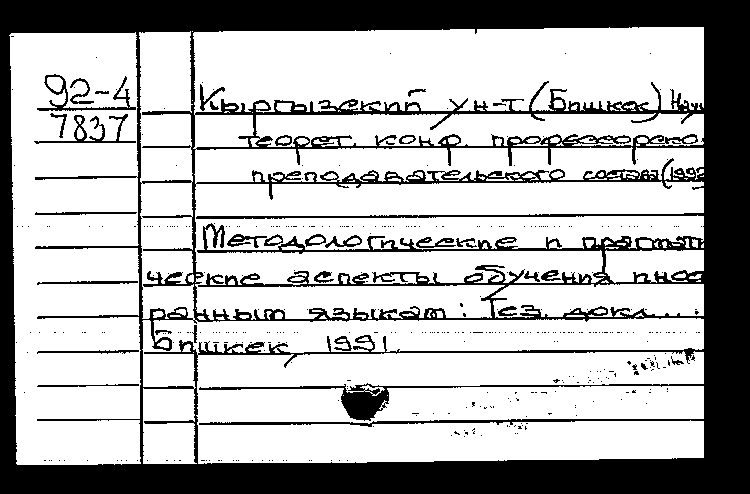 92-4
7837
Кыргызский ун-т (Бишкек) Науч
теорет. конф. профессорско-
преподавательского состава (1992
Методологические и прагмати
ческие аспекты обучения иност
ранным языкам: Тез. докл...
Бишкек, 1991.